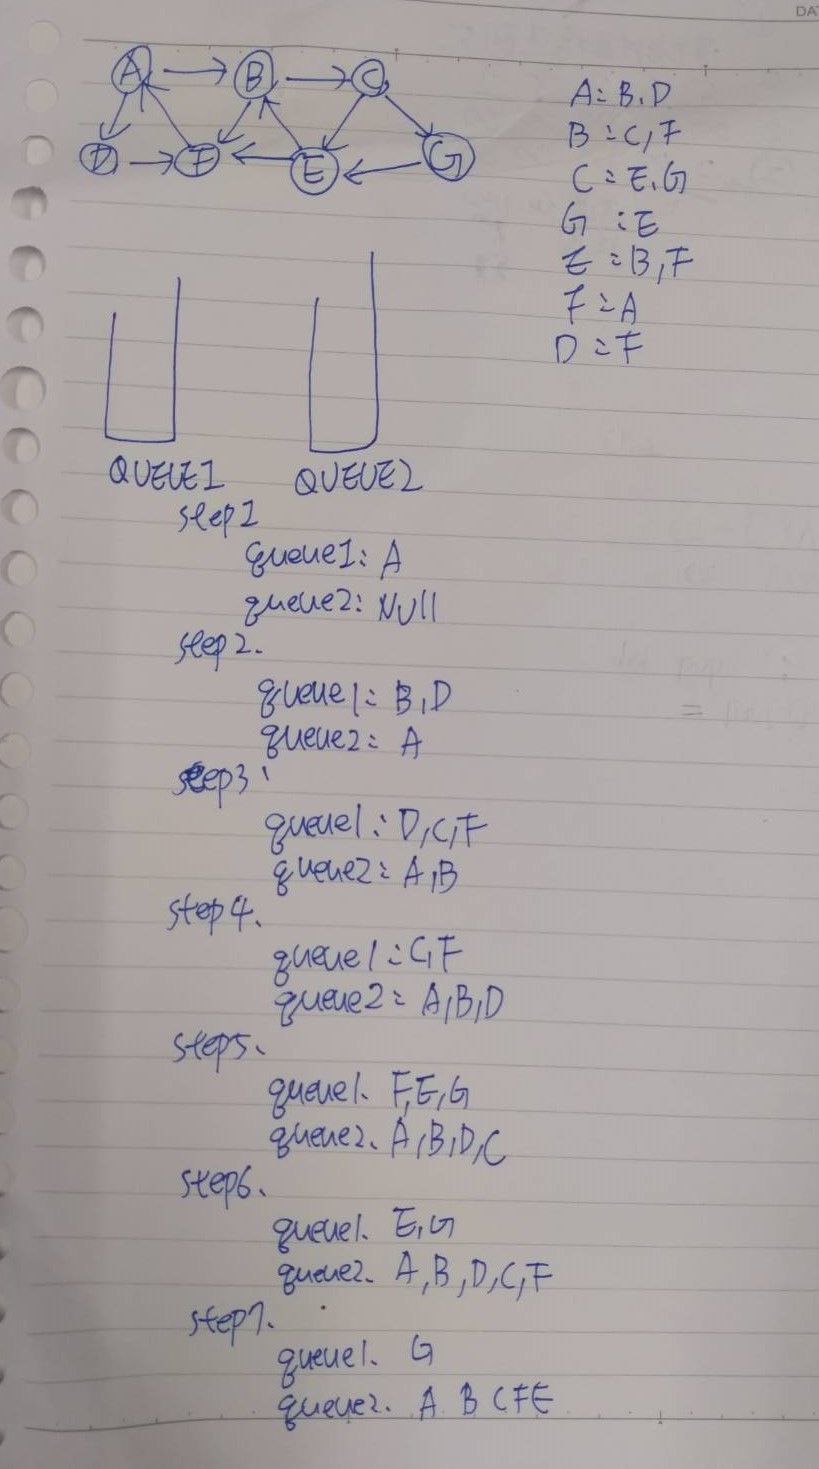 DA
A B C
D F E G
A: B, D
B: C, F
C: E, G
G: E
E: B, F
F: A
D: F
QUEUE1 QUEUE2
step1
queue1: A
queue2: NUll
step2.
queue1: B, D
queue2: A
step3
queue1: D, C, F
queue2: A, B
step4.
queue1: C, F
queue2: A, B, D
step5.
queue1. F, E, G
queue2. A, B, D, C
step6.
queue1. E, G
queue2. A, B, D, C, F
step7.
queue1. G
queue2. A B C F E